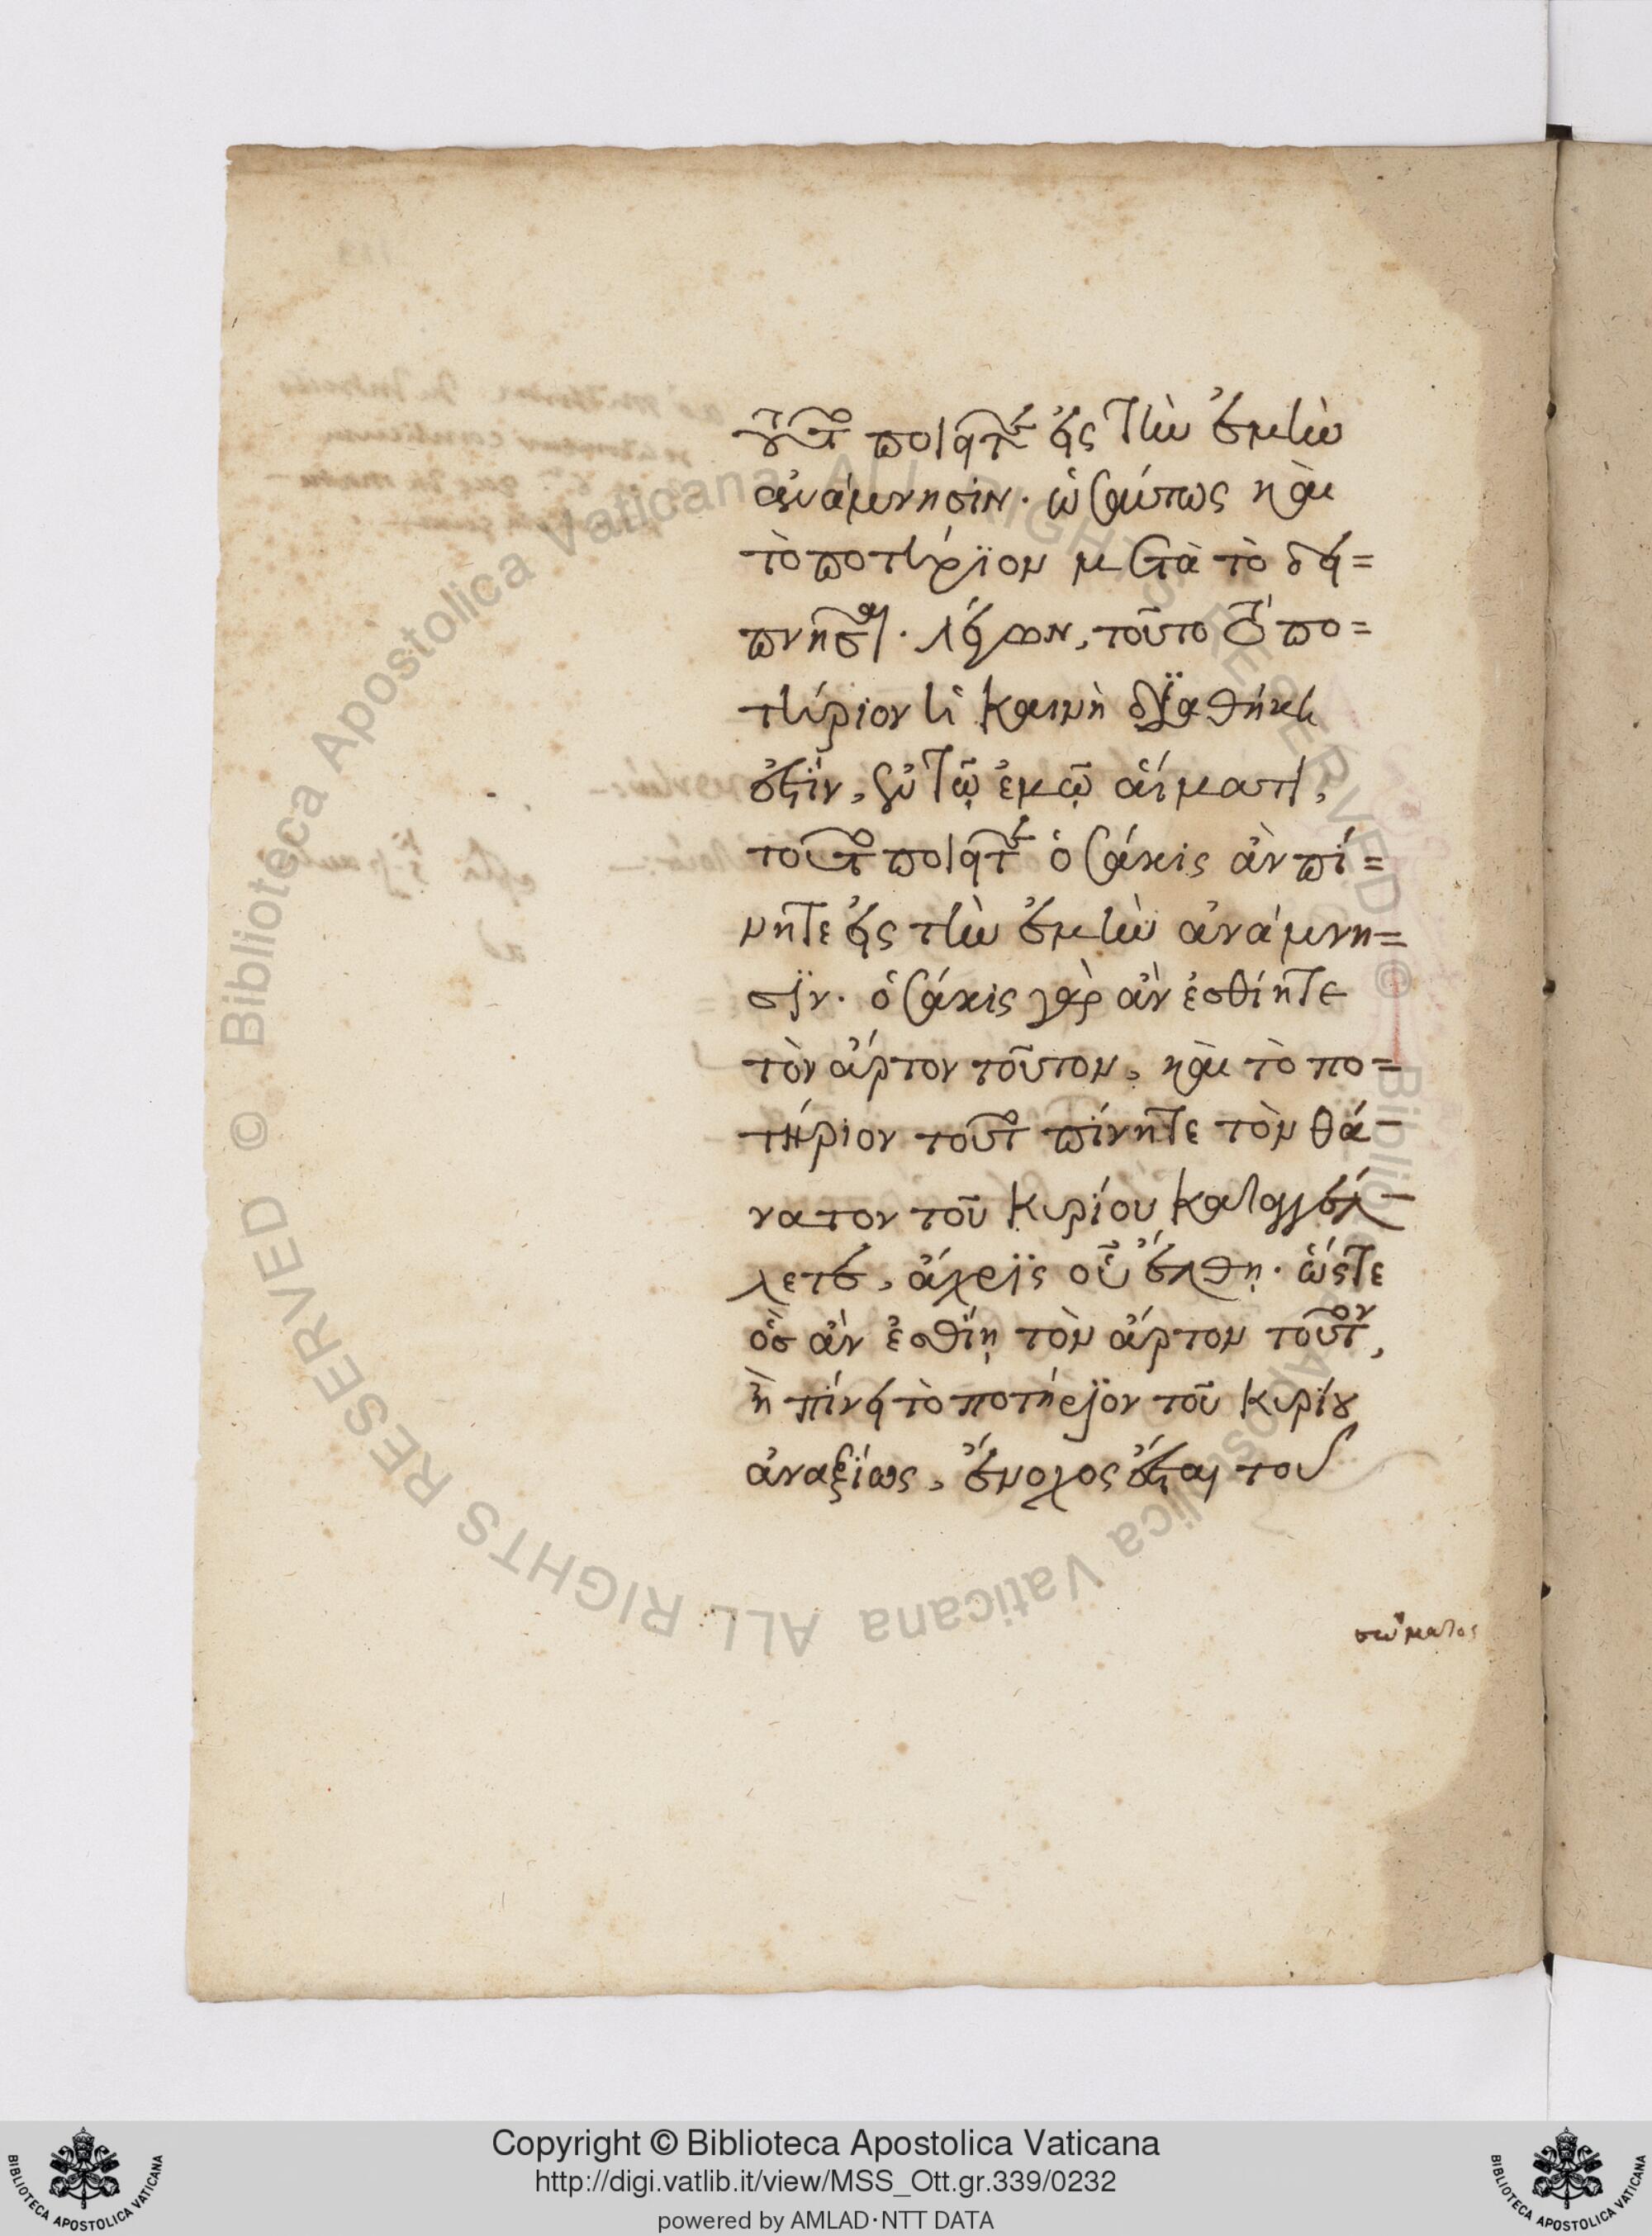 τοῦτο ποιεῖτε εἰς τὴν ἐμὴν
ἀνάμνησιν· ὡσαύτως καὶ
τὸ ποτήριον μετὰ τὸ δει=
πνῆσαι· λέγων, τοῦτο τὸ πο=
τήριον ἡ καινὴ διαθήκη
ἐστὶν, ἐν τῷ ἐμῷ αἵματι,
τοῦτο ποιεῖτε ὁσάκις ἂν πί=
νητε εἰς τὴν ἐμὴν ἀνάμνη=
σιν· ὁσάκις γὰρ ἂν ἐσθίητε
τὸν ἄρτον τοῦτον, καὶ τὸ πο=
τήριον τοῦτο πίνητε τὸν θά-
νατον τοῦ Κυρίου καταγγέλ-
λετε, ἄχρις οὗ ἔλθῃ· ὥστε
ὃσ ἂν ἐσθίῃ τὸν ἄρτον τοῦτον,
ἢ πίνει τὸ ποτήριον τοῦ Κυρίου
ἀναξίως, ἔνοχος ἔσται τοῦ
σώματος
Biblioteca Apostolica Vaticana ALL RIGHTS RESERVED © Biblioteca Apostolica Vaticana ALL RIGHTS RESERVED ©
Copyright © Biblioteca Apostolica Vaticana
http://digi.vatlib.it/view/MSS_Ott.gr.339/0232
powered by AMLAD·NTT DATA
BIBLIOTECA APOSTOLICA VATICANA
BIBLIOTECA APOSTOLICA VATICANA